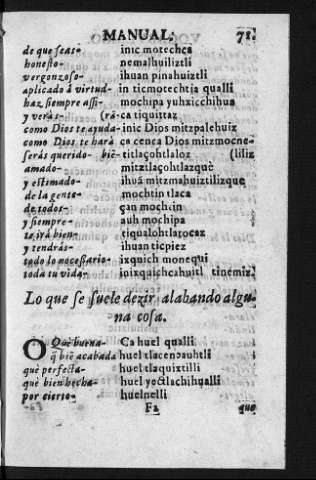 MANUAL. 71.
de que seas- inic motechca
honesto- nemalhuiliztli
vergonzoso- ihuan pinahuiztli
aplicado â virtud- in ticmotechtia qualli
haz siempre assi- mochipa yuhxicchihua
y verâs- (rà- ca tiquittaz
como Dios te ayuda- inic Dios mitzpalehuiz
como Dios te harà ca cenca Dios mitzmocne-
serâs querido biē- titlaçohtlaloz (liliz
amado- mitztlaçohtlazquè
y estimado- ihuā mitzmahuiztilizque
de la gente- mochtin tlaca
de todos- çan mochtin
y siempre- auh mochipa
te irà bien- tiqualohtlatocaz
y tendrás- ihuan ticpiez
todo lo necessario- ixquich monequi
toda tu vida- inixquichcahuitl tinemiz.
Lo que se suele dezir alabando algu-
na cosa.
O Què buena- Ca huel qualli
q̄ biē acabada huel tlacencauhtli
què perfecta- huel tlaquixtilli
què bien hecha- huel yectlachihualli
por cierto- huelnelli
F2 que